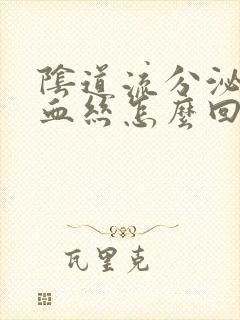 陰道流分泌
血絲怎麼回
瓦里克